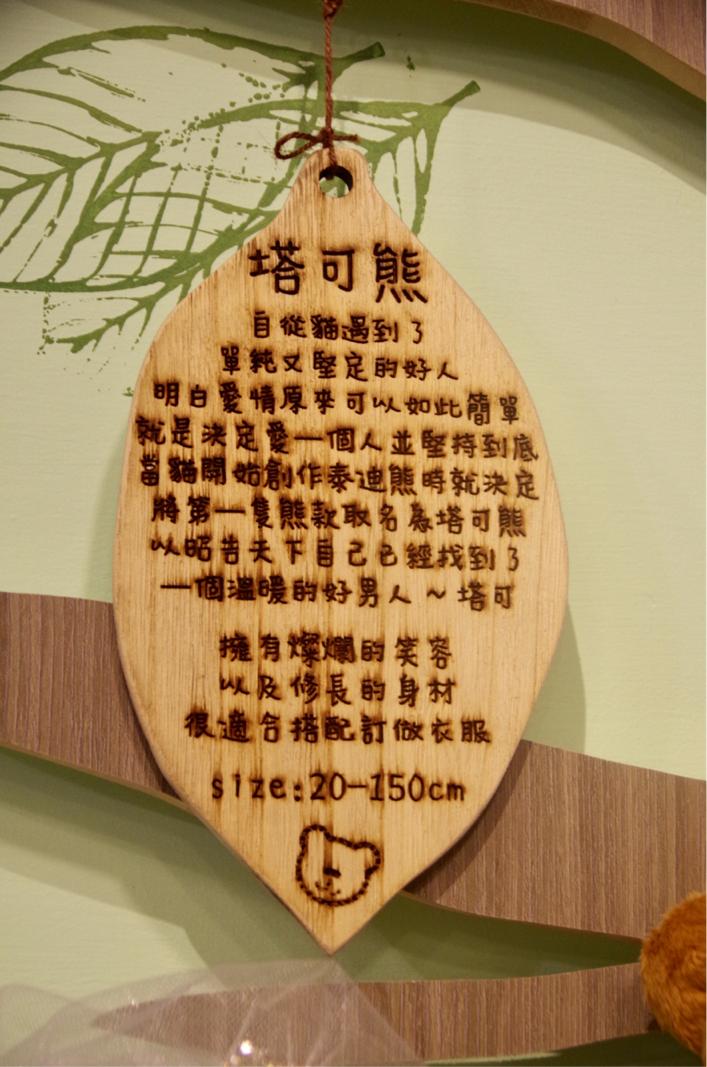 塔可熊
自從貓遇到了
單純又堅定的好人
明白愛情原來可以如此簡單
就是決定愛一個人並堅持到底
當貓開始創作泰迪熊時就決定
將第一隻熊款取名為塔可熊
以昭告天下自己已經找到了
一個溫暖的好男人~塔可
擁有燦爛的笑容
以及修長的身材
很適合搭配訂做衣服
size:20-150cm